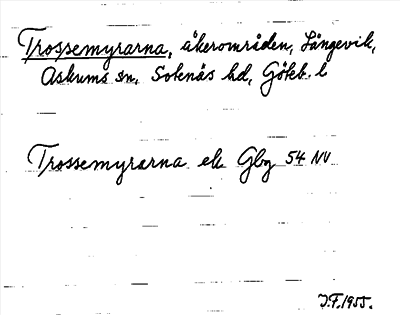 Trossemyrarna, åkerområden, Långevik,
Askums sn, Sotenäs hd, Göteb. l
Trossemyrarna ek Gbg 54 NV
J.F. 1955.